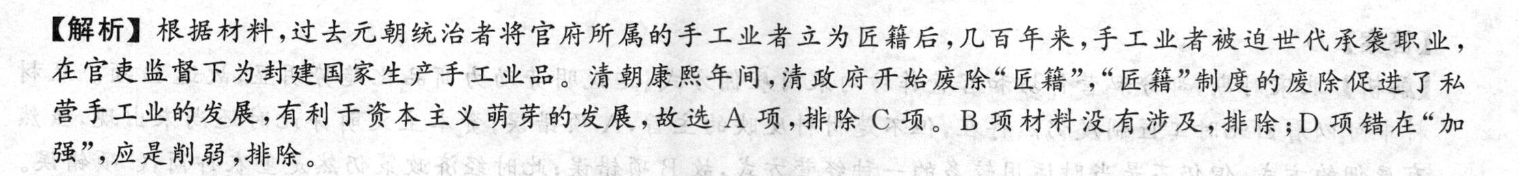 【解析】根据材料,过去元朝统治者将官府所属的手工业者立为匠籍后,几百年来,手工业者被迫世代承袭职业,
在官吏监督下为封建国家生产手工业品。清朝康熙年间,清政府开始废除“匠籍”,“匠籍”制度的废除促进了私
营手工业的发展,有利于资本主义萌芽的发展,故选 A 项,排除 C 项。B 项材料没有涉及,排除;D 项错在“加
强”,应是削弱,排除。